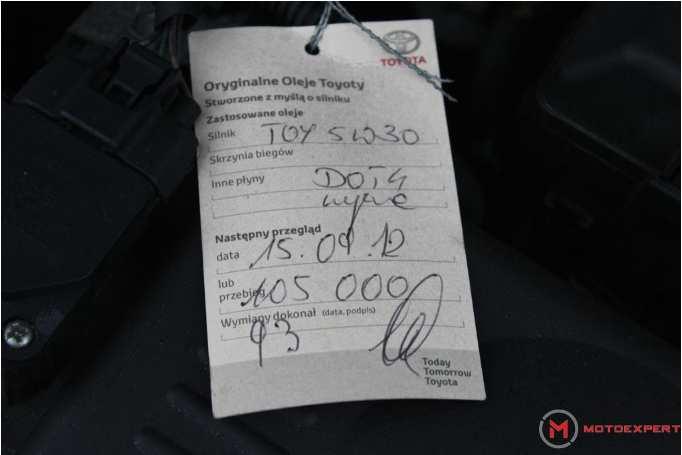 TOYOTA
Oryginalne Oleje Toyoty
Stworzone z myślą o silniku
Zastosowane oleje
Silnik TOY 5W30
Skrzynia biegów
Inne płyny DOT4
Następny przegląd
data 15.09.12
lub
przebieg 105 000
Wymiany dokonał (data, podpis)
93
Today
Tomorrow
Toyota
M MOTOEXPERT